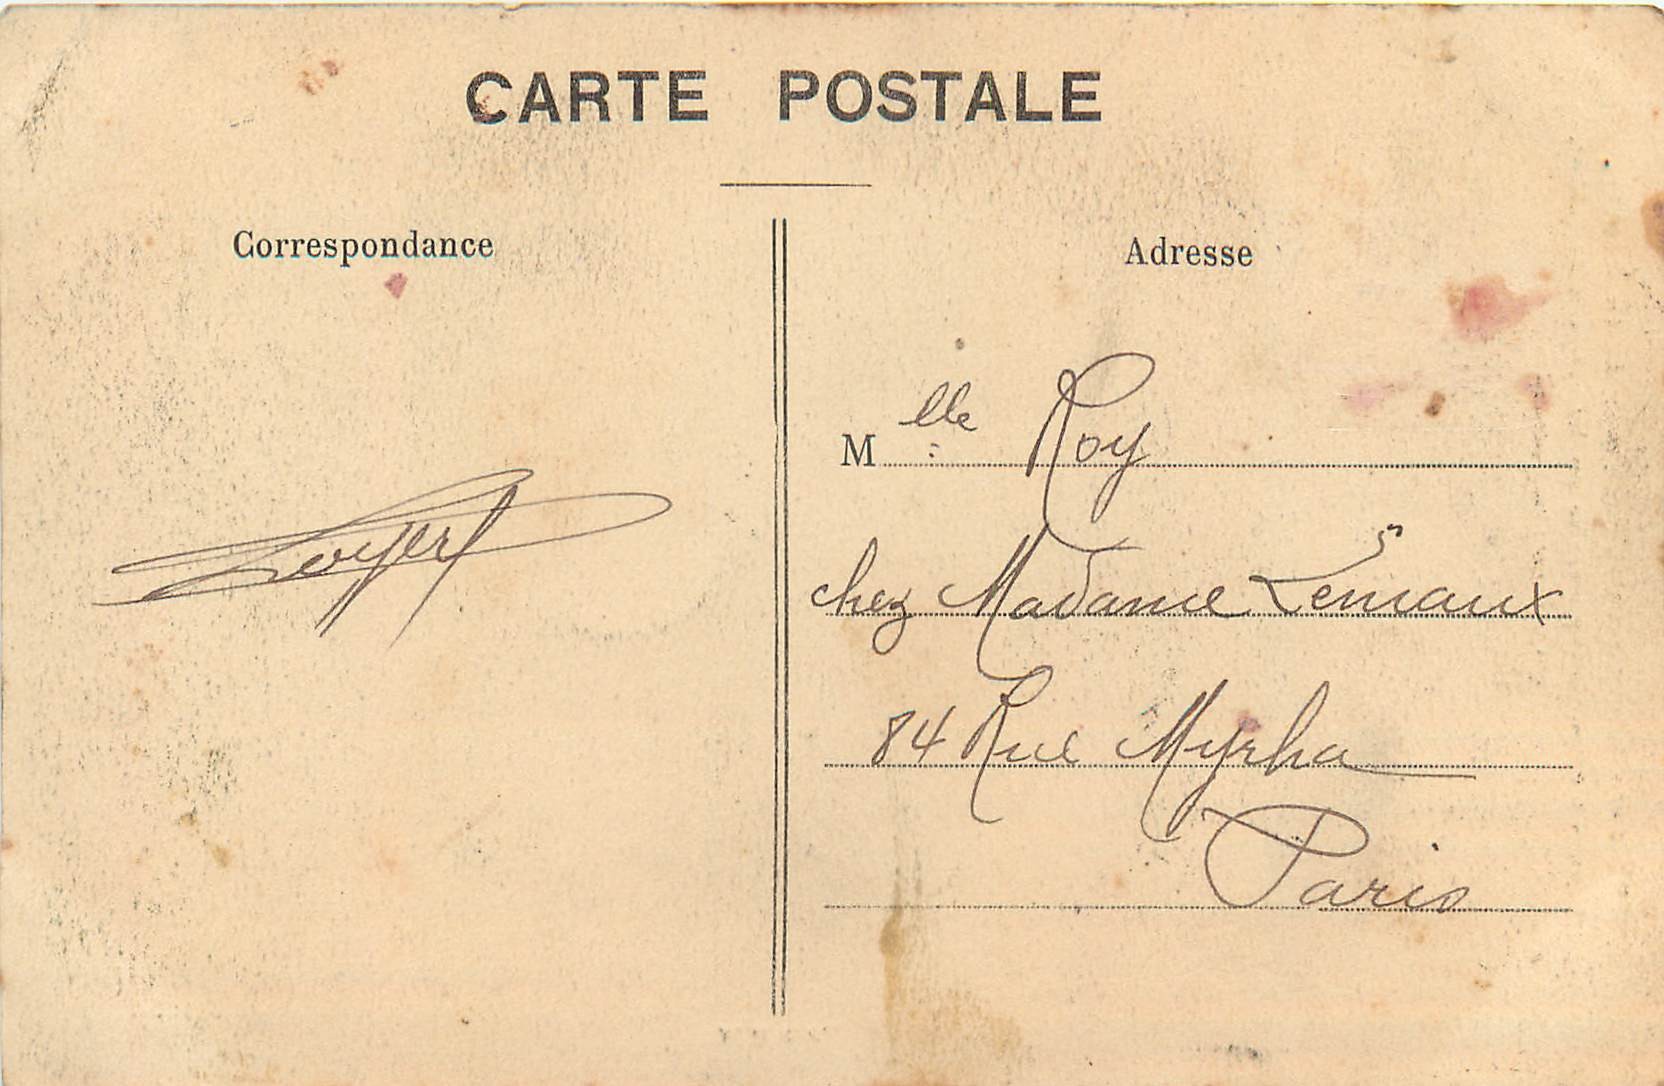 CARTE POSTALE
Correspondance
Adresse
Mlle Roy
chez Madame Lemaux
84 Rue Myrha
Paris